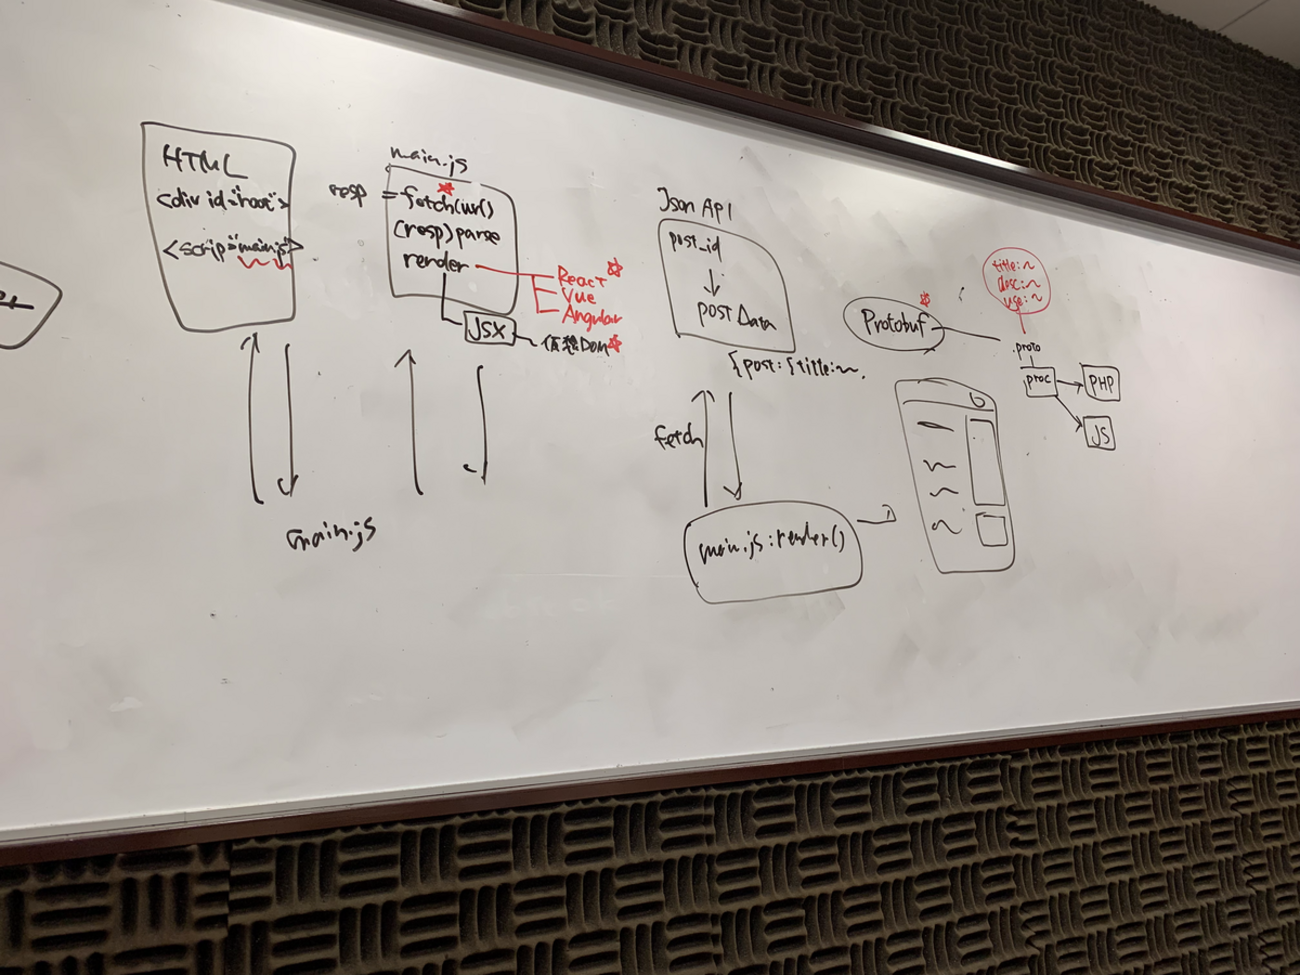 HTML
<div id="root">
<scrip="main.js">
main.js
resp = fetch(url)
(resp) parse
render
React
Vue
Angular
JSX
仮想DOM
main.js
Json API
post_id
post Data
{post:{title:~,
fetch
main.js:render()
Protobuf
title:~
desc:~
use:~
.proto
proc
PHP
JS